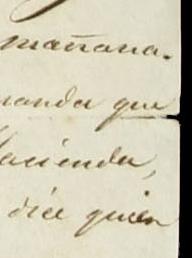 mañana.
manda que
Hacienda,
dice quien